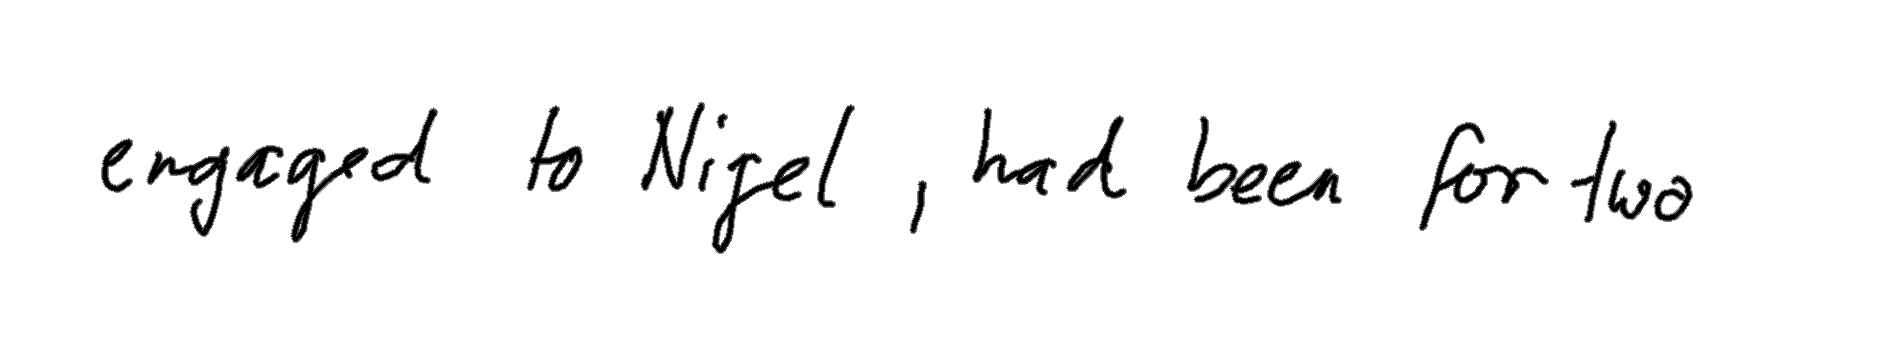 engaged to Nigel, had been for two